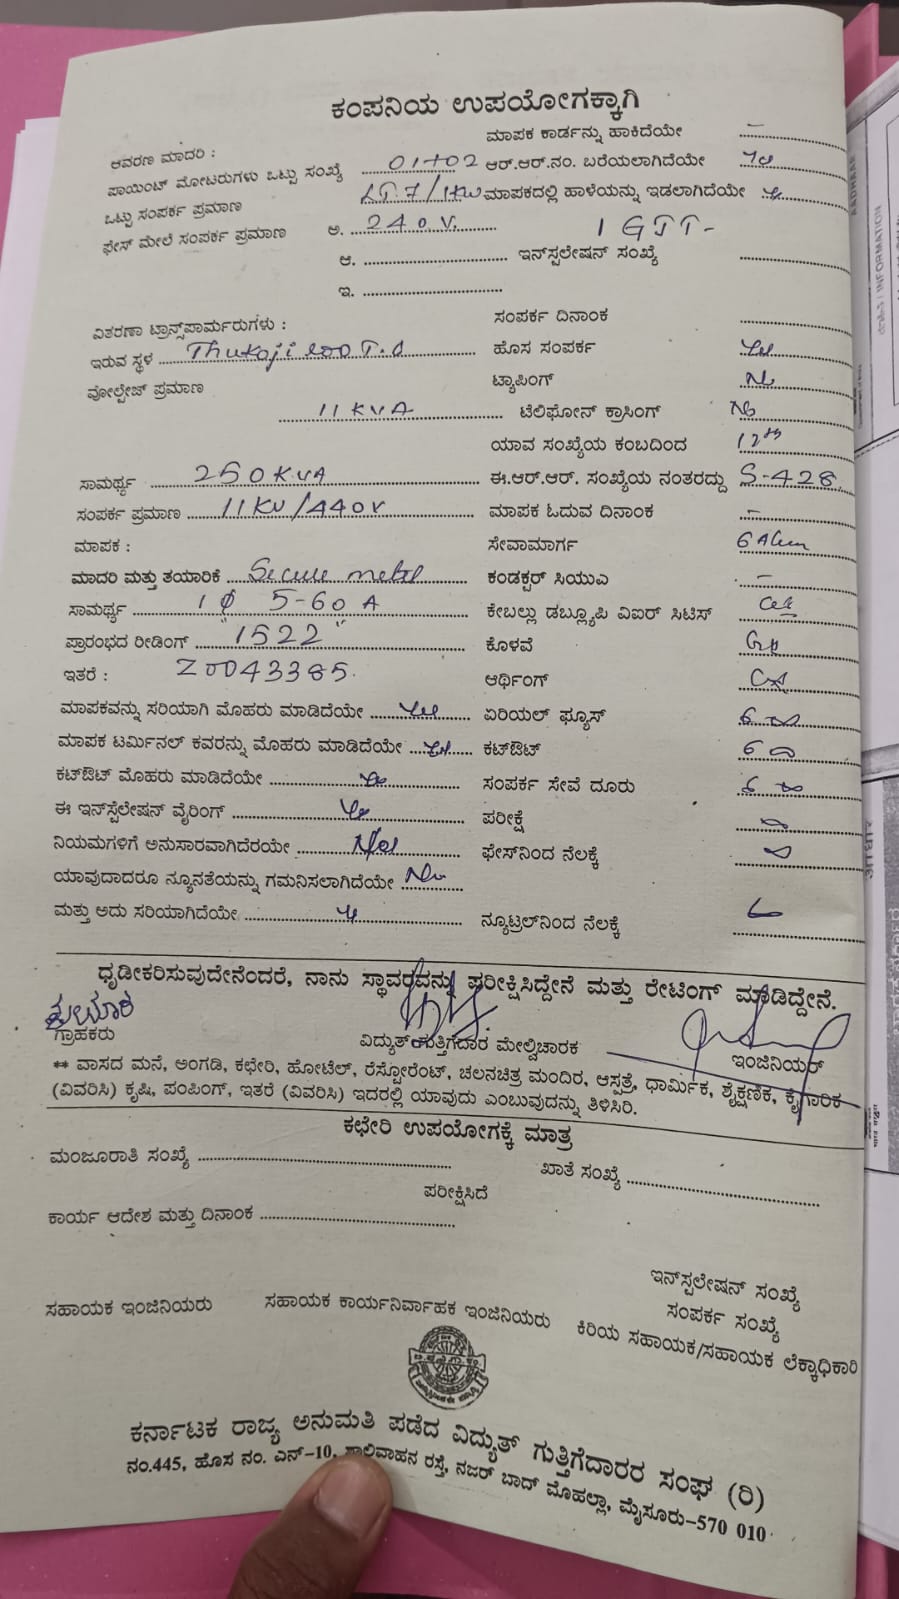 ಕಂಪನಿಯ ಉಪಯೋಗಕ್ಕಾಗಿ
ಮಾಪಕ ಕಾರ್ಡನ್ನು ಹಾಕಿದೆಯೇ –
ಆವರಣ ಮಾದರಿ :
ಪಾಯಿಂಟ್ ಮೋಟರುಗಳು ಒಟ್ಟು ಸಂಖ್ಯೆ 01+02 ಆರ್.ಆರ್.ನಂ. ಬರೆಯಲಾಗಿದೆಯೇ
ಒಟ್ಟು ಸಂಪರ್ಕ ಪ್ರಮಾಣ LT.7/1KW ಮಾಪಕದಲ್ಲಿ ಹಾಳೆಯನ್ನು ಇಡಲಾಗಿದೆಯೇ
ಫೇಸ್ ಮೇಲೆ ಸಂಪರ್ಕ ಪ್ರಮಾಣ ಅ. 240 V.
ಆ. ಇನ್‌ಸ್ಟಲೇಷನ್ ಸಂಖ್ಯೆ
ಇ.
ವಿತರಣಾ ಟ್ರಾನ್ಸ್‌ಪಾರ್ಮರುಗಳು : ಸಂಪರ್ಕ ದಿನಾಂಕ
ಇರುವ ಸ್ಥಳ Thukoji ಹೊಸ ಸಂಪರ್ಕ Yes
ವೋಲ್ಟೇಜ್ ಪ್ರಮಾಣ ಟ್ಯಾಪಿಂಗ್ No
11 KVA ಟೆಲಿಫೋನ್ ಕ್ರಾಸಿಂಗ್ No
ಯಾವ ಸಂಖ್ಯೆಯ ಕಂಬದಿಂದ 12th
ಸಾಮರ್ಥ್ಯ 250KVA ಈ.ಆರ್.ಆರ್. ಸಂಖ್ಯೆಯ ನಂತರದ್ದು S-428
ಸಂಪರ್ಕ ಪ್ರಮಾಣ 11KV/440V ಮಾಪಕ ಓದುವ ದಿನಾಂಕ –
ಮಾಪಕ : ಸೇವಾಮಾರ್ಗ
ಮಾದರಿ ಮತ್ತು ತಯಾರಿಕೆ Secure ಕಂಡಕ್ಟರ್ ಸಿಯುಎ –
ಸಾಮರ್ಥ್ಯ 1 φ 5-60 A ಕೇಬಲ್ಲು ಡಬ್ಲ್ಯೂಪಿ ವಿಐರ್ ಸಿಟಿಸ್
ಪ್ರಾರಂಭದ ರೀಡಿಂಗ್ 1522 ಕೊಳವೆ
ಇತರೆ : Z0043385. ಆರ್ಥಿಂಗ್
ಮಾಪಕವನ್ನು ಸರಿಯಾಗಿ ಮೊಹರು ಮಾಡಿದೆಯೇ Yes ಏರಿಯಲ್ ಫ್ಯೂಸ್
ಮಾಪಕ ಟರ್ಮಿನಲ್ ಕವರನ್ನು ಮೊಹರು ಮಾಡಿದೆಯೇ Yes ಕಟ್‌ಔಟ್
ಕಟ್‌ಔಟ್ ಮೊಹರು ಮಾಡಿದೆಯೇ ಸಂಪರ್ಕ ಸೇವೆ ದೂರು
ಈ ಇನ್‌ಸ್ಟೆಲೇಷನ್ ವೈರಿಂಗ್ ಪರೀಕ್ಷೆ
ನಿಯಮಗಳಿಗೆ ಅನುಸಾರವಾಗಿದೆರಯೇ Yes ಫೇಸ್‌ನಿಂದ ನೆಲಕ್ಕೆ
ಯಾವುದಾದರೂ ನ್ಯೂನತೆಯನ್ನು ಗಮನಿಸಲಾಗಿದೆಯೇ No
ಮತ್ತು ಅದು ಸರಿಯಾಗಿದೆಯೇ ನ್ಯೂಟ್ರಲ್‌ನಿಂದ ನೆಲಕ್ಕೆ
ಧೃಡೀಕರಿಸುವುದೇನೆಂದರೆ, ನಾನು ಸ್ಥಾವರವನ್ನು ಪರೀಕ್ಷಿಸಿದ್ದೇನೆ ಮತ್ತು ರೇಟಿಂಗ್ ಮಾಡಿದ್ದೇನೆ.
ಗ್ರಾಹಕರು ವಿದ್ಯುತ್ ಗುತ್ತಿಗೆದಾರ ಮೇಲ್ವಿಚಾರಕ ಇಂಜಿನಿಯರ್
** ವಾಸದ ಮನೆ, ಅಂಗಡಿ, ಕಛೇರಿ, ಹೋಟೆಲ್, ರೆಸ್ಟೋರೆಂಟ್, ಚಲನಚಿತ್ರ ಮಂದಿರ, ಆಸ್ಪತ್ರೆ, ಧಾರ್ಮಿಕ, ಶೈಕ್ಷಣಿಕ, ಕೈಗಾರಿಕ
(ವಿವರಿಸಿ) ಕೃಷಿ, ಪಂಪಿಂಗ್, ಇತರೆ (ವಿವರಿಸಿ) ಇದರಲ್ಲಿ ಯಾವುದು ಎಂಬುವುದನ್ನು ತಿಳಿಸಿರಿ.
ಕಛೇರಿ ಉಪಯೋಗಕ್ಕೆ ಮಾತ್ರ
ಮಂಜೂರಾತಿ ಸಂಖ್ಯೆ ಖಾತೆ ಸಂಖ್ಯೆ
ಪರೀಕ್ಷಿಸಿದೆ
ಕಾರ್ಯ ಆದೇಶ ಮತ್ತು ದಿನಾಂಕ
ಇನ್‌ಸ್ಟಲೇಷನ್ ಸಂಖ್ಯೆ
ಸಂಪರ್ಕ ಸಂಖ್ಯೆ
ಸಹಾಯಕ ಇಂಜಿನಿಯರು ಸಹಾಯಕ ಕಾರ್ಯನಿರ್ವಾಹಕ ಇಂಜಿನಿಯರು ಕಿರಿಯ ಸಹಾಯಕ/ಸಹಾಯಕ ಲೆಕ್ಕಾಧಿಕಾರಿ
ಕರ್ನಾಟಕ ರಾಜ್ಯ ಅನುಮತಿ ಪಡೆದ ವಿದ್ಯುತ್ ಗುತ್ತಿಗೆದಾರರ ಸಂಘ (ರಿ)
ನಂ.445, ಹೊಸ ನಂ. ಎನ್-10, ಶಾಲಿವಾಹನ ರಸ್ತೆ, ನಜರ್ ಬಾದ್ ಮೊಹಲ್ಲಾ, ಮೈಸೂರು-570 010
INFORMATION